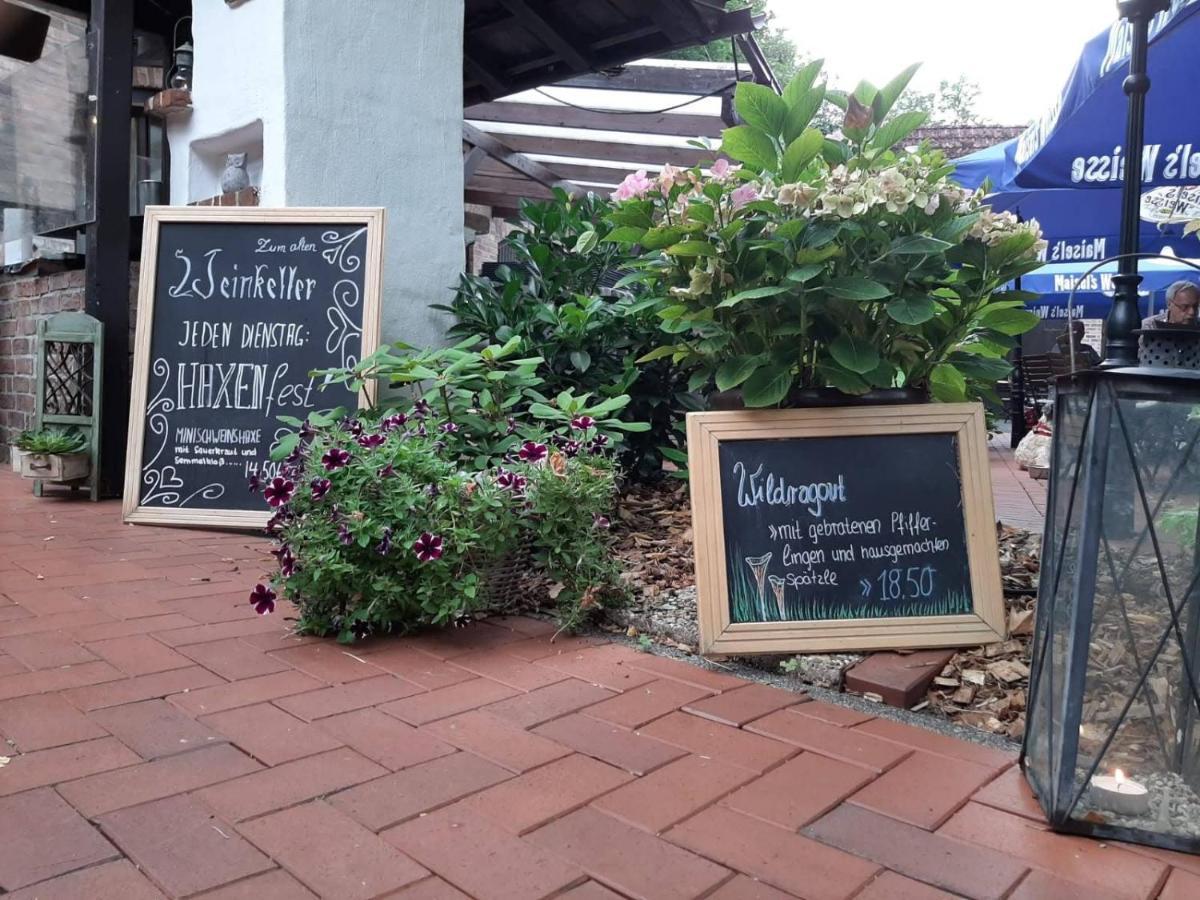 Zum alten
Weinkeller
JEDEN DIENSTAG:
HAXENfest
MINISCHWEINSHAXE
mit Sauerkraut und
Semmelkloß..... 14,50€
Wildragout
»mit gebratenen Pfiffer-
lingen und hausgemachten
Spätzle » 18.50
Maisel's Weisse
Maisel's
Maisel's We